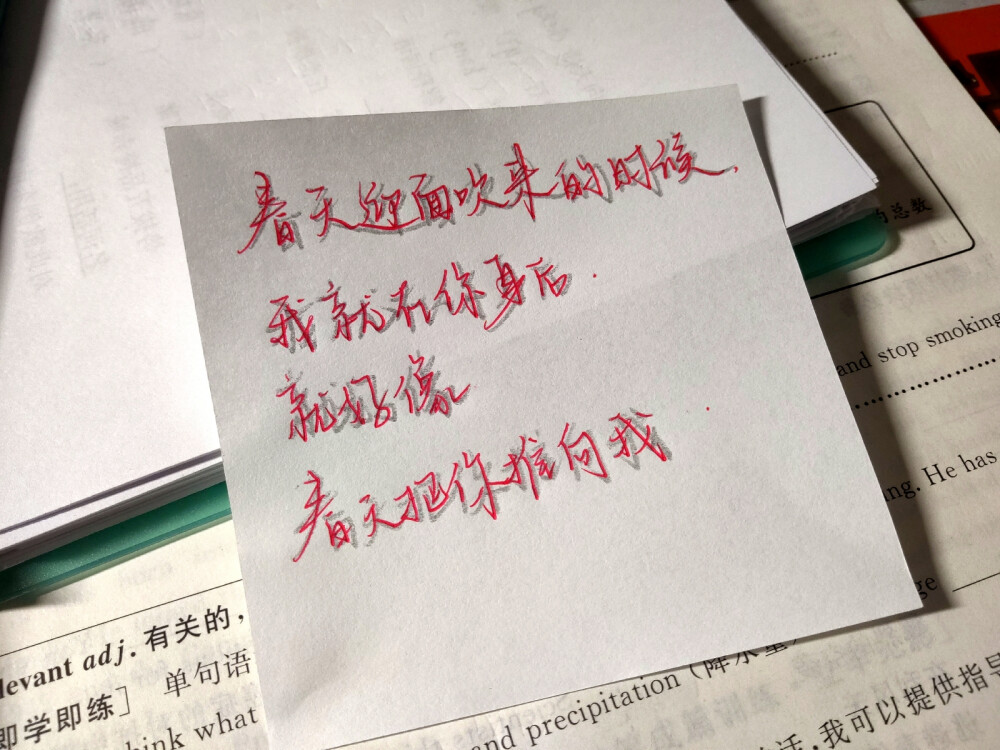 春天迎面吹来的时候,
我就在你身后.
就好像
春天把你推向我
的总数
and stop smoking
ng. He has
levant adj. 有关的,
即学即练] 单句语
hink what
and precipitation (降水量)
ge
我可以提供指导